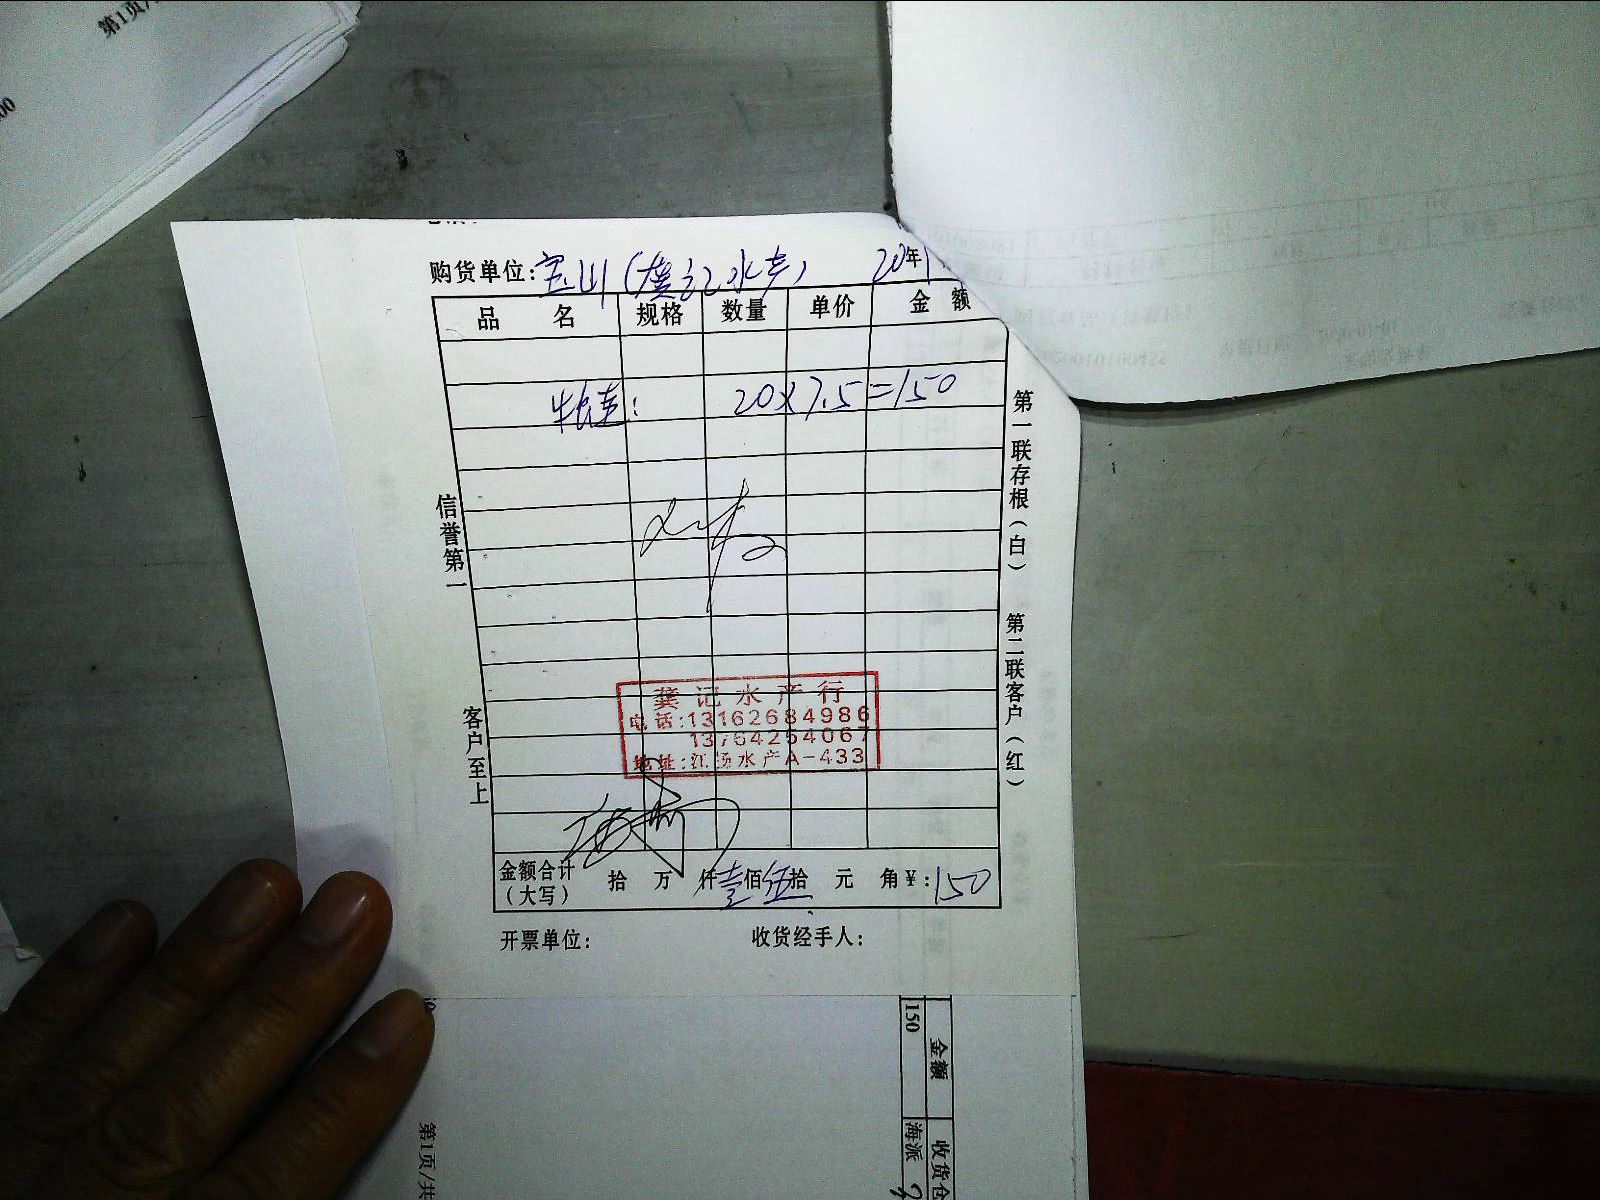 第1页/
00
购货单位:宝山(龚记水产) 20年1
品 名 规格 数量 单价 金 额
牛蛙: 20×7.5=150
信誉第一
客户至上
第一联存根(白)
第二联客户(红)
龚记水产行
电话:13162684986
13764254067
地址:江杨水产A-433
金额合计(大写) 拾 万 仟壹佰伍拾 元 角¥:150
开票单位: 收货经手人:
金额 收货仓
150 海派
第1页/共